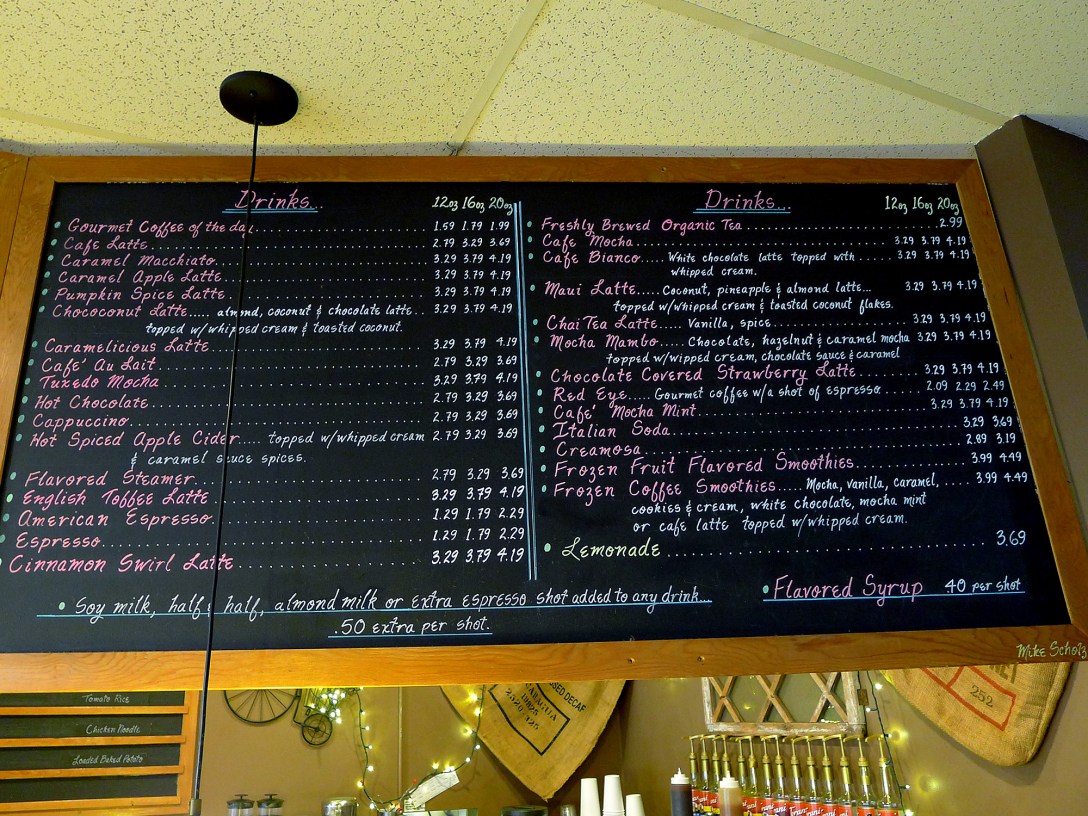 Drinks...
12oz 16oz 20oz
Gourmet Coffee of the day 1.59 1.79 1.99
Cafe Latte 2.79 3.29 3.69
Caramel Macchiato 3.29 3.79 4.19
Caramel Apple Latte 3.29 3.79 4.19
Pumpkin Spice Latte 3.29 3.79 4.19
Chococonut Latte..... almond, coconut & chocolate latte.. 3.29 3.79 4.19
topped w/whipped cream & toasted coconut.
Caramelicious Latte 3.29 3.79 4.19
Cafe' Au Lait 2.79 3.29 3.69
Tuxedo Mocha 3.29 3.79 4.19
Hot Chocolate 2.79 3.29 3.69
Cappuccino 2.79 3.29 3.69
Hot Spiced Apple Cider.... topped w/whipped cream 2.79 3.29 3.69
& caramel sauce spices.
Flavored Steamer 2.79 3.29 3.69
English Toffee Latte 3.29 3.79 4.19
American Espresso 1.29 1.79 2.29
Espresso 1.29 1.79 2.29
Cinnamon Swirl Latte 3.29 3.79 4.19
Drinks...
12oz 16oz 20oz
Freshly Brewed Organic Tea 2.99
Cafe Mocha 3.29 3.79 4.19
Cafe Bianco..... White chocolate latte topped with 3.29 3.79 4.19
whipped cream.
Maui Latte..... Coconut, pineapple & almond latte... 3.29 3.79 4.19
topped w/whipped cream & toasted coconut flakes.
Chai Tea Latte..... Vanilla, spice 3.29 3.79 4.19
Mocha Mambo..... Chocolate, hazelnut & caramel mocha 3.29 3.79 4.19
topped w/wipped cream, chocolate sauce & caramel
Chocolate Covered Strawberry Latte 3.29 3.79 4.19
Red Eye.... Gourmet coffee w/a shot of espresso 2.09 2.29 2.49
Cafe' Mocha Mint 3.29 3.79 4.19
Italian Soda 3.29 3.69
Creamosa 2.89 3.19
Frozen Fruit Flavored Smoothies 3.99 4.49
Frozen Coffee Smoothies..... Mocha, vanilla, caramel, 3.99 4.49
cookies & cream, white chocolate, mocha mint
or cafe latte topped w/whipped cream.
Lemonade 3.69
Soy milk, half & half, almond milk or extra espresso shot added to any drink...
.50 extra per shot.
Flavored Syrup .40 per shot
Mike Scholz
Tomato Rice
Chicken Noodle
Loaded Baked Potato
DECAF
252